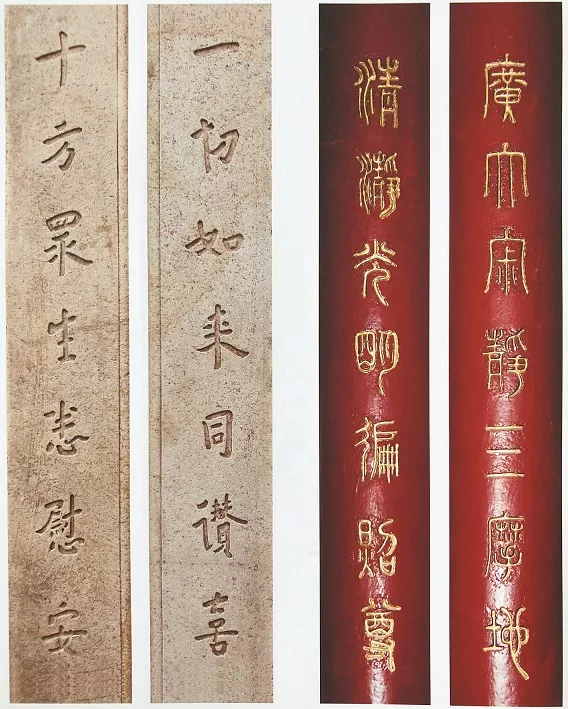 廣大寂靜三摩地
清瀞光明徧照尊
一切如来同讚喜
十方眾生悉慰安